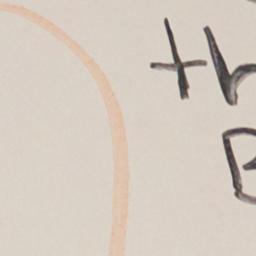 th
B